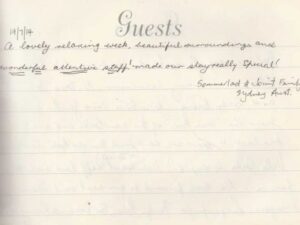 Guests
19/7/14
A lovely relaxing week, beautiful surroundings and
wonderful attentive staff! made our stay really special!
Sommerlad & Joint Family
Sydney Aust.